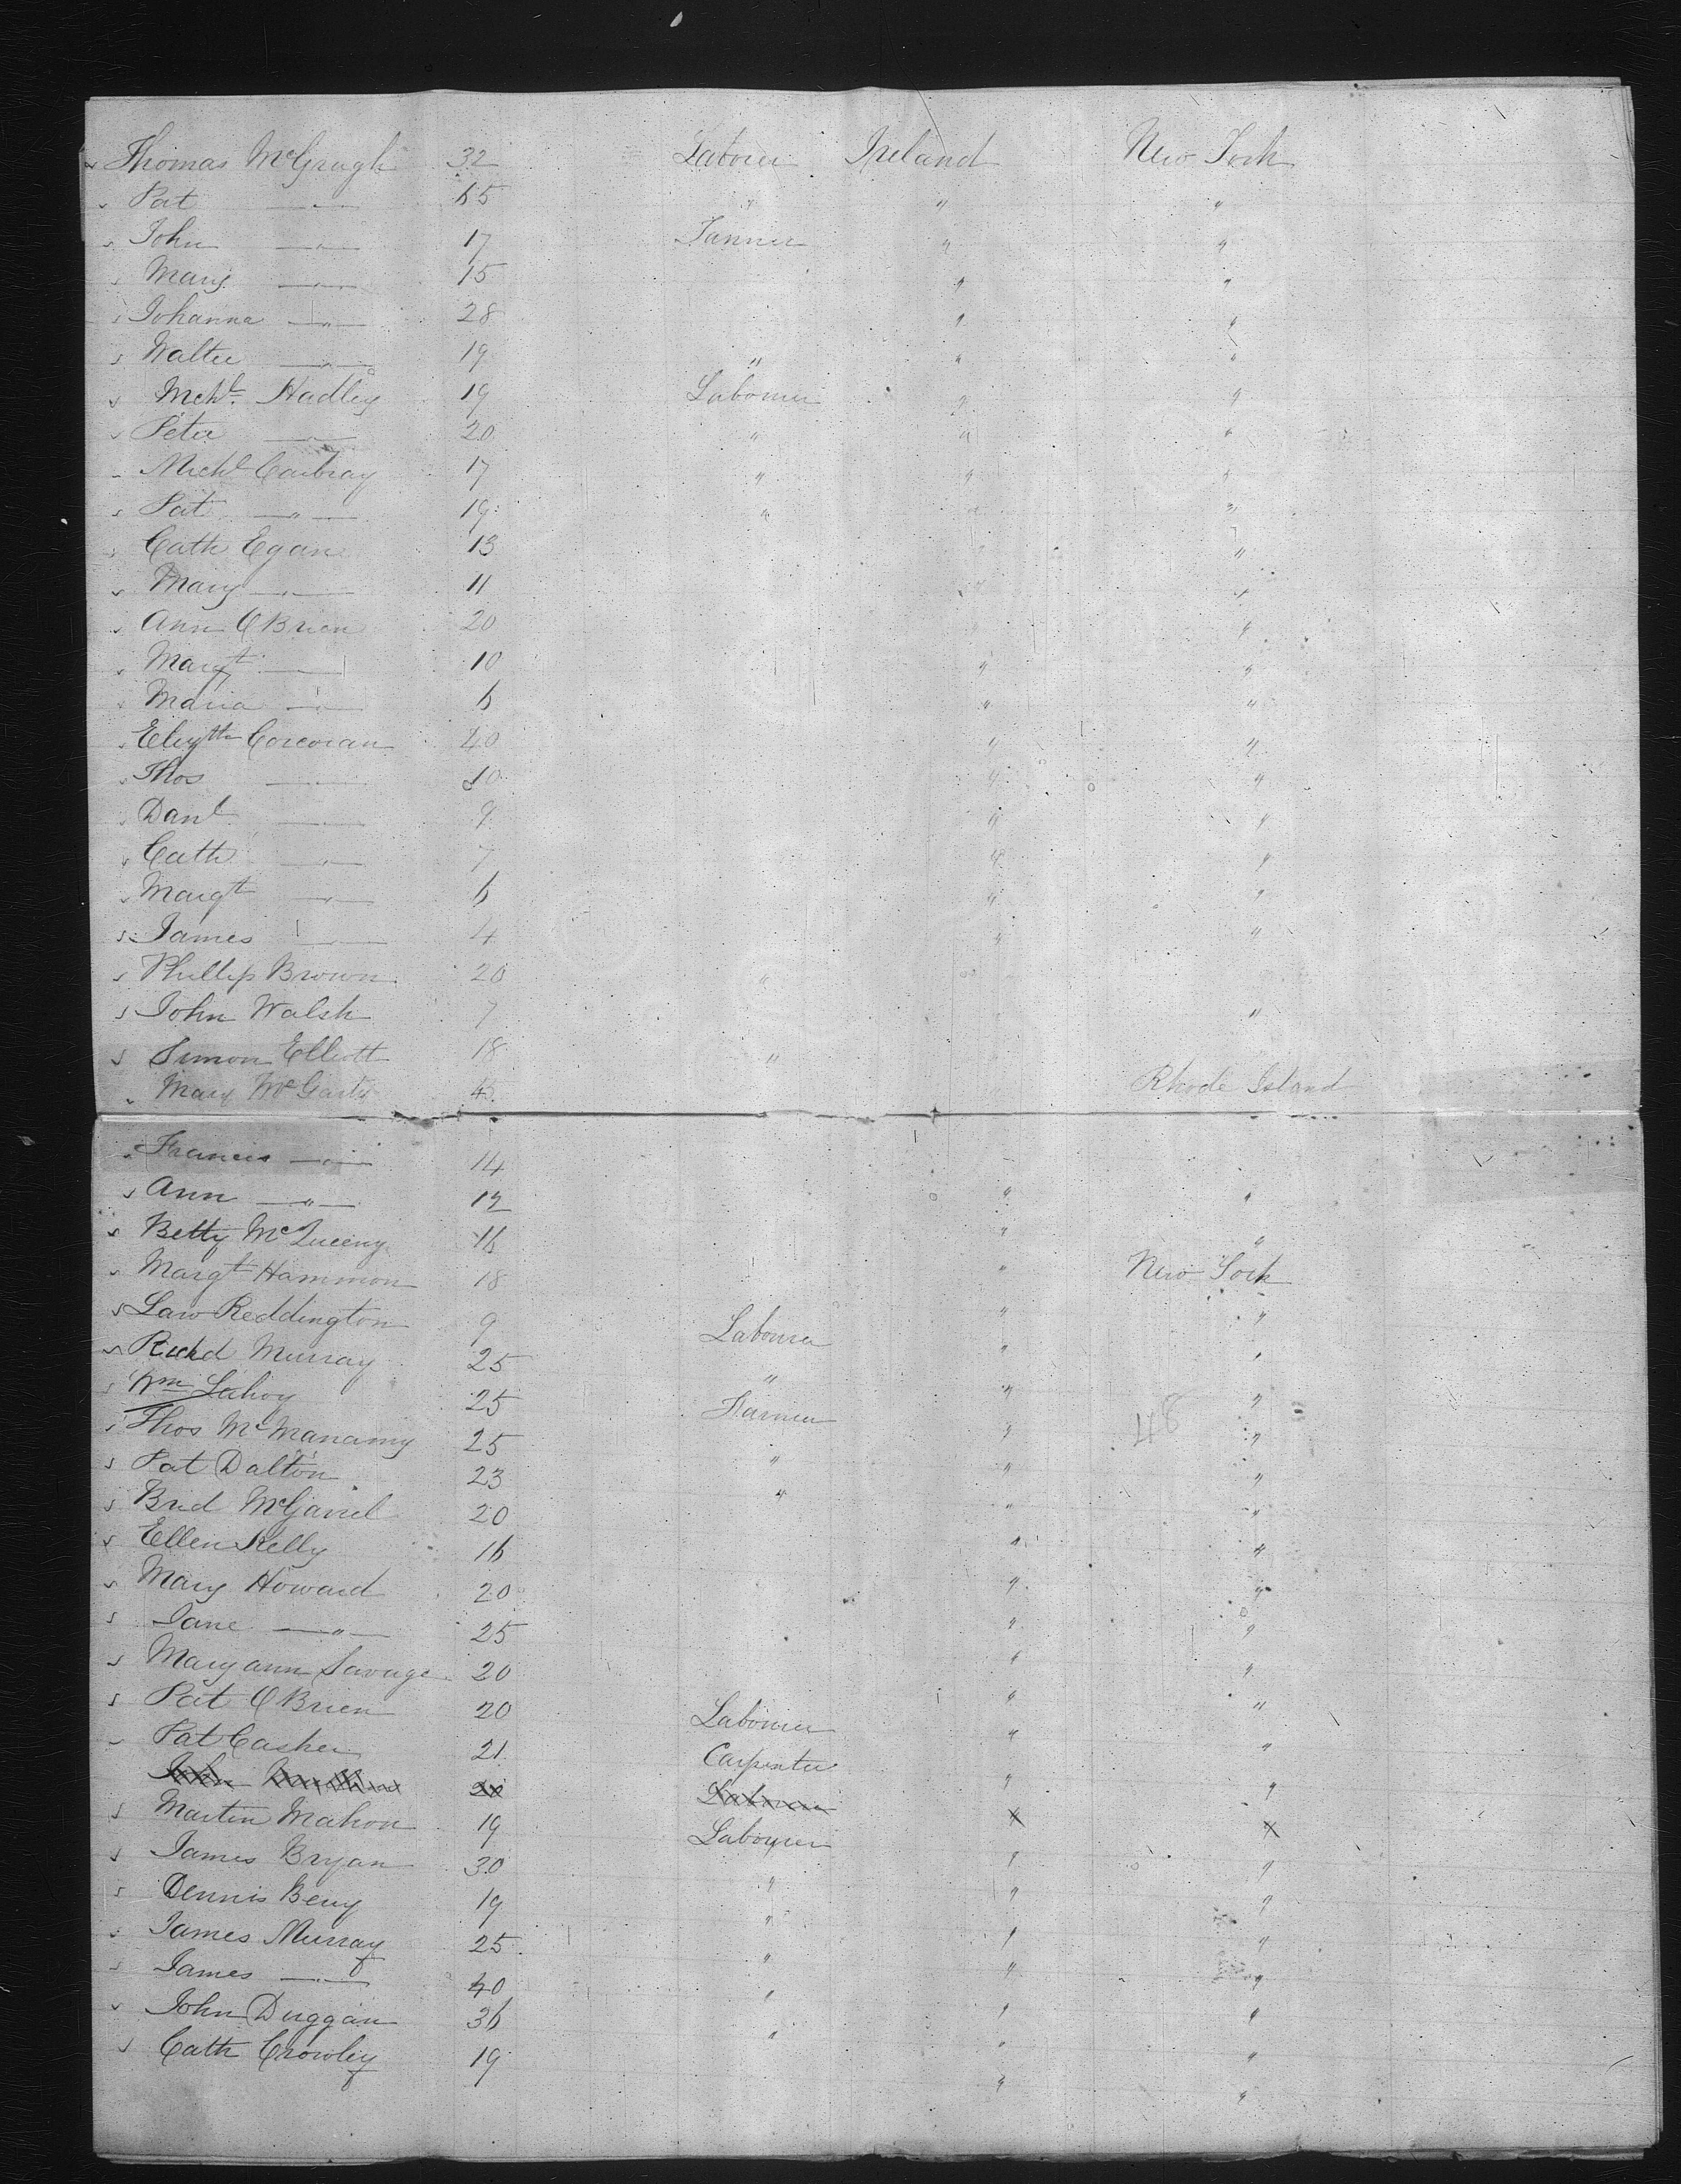 Thomas McGragh 32 Labourer Ireland New York
Pat —"— 65 " " "
John —"— 17 Tanner " "
Mary —"— 15 " "
Johanna —"— 28 " "
Walter —"— 19 " " "
Michl. Hadley 19 Labourer " "
Peter —"— 20 " " "
Michl Carbray 17 " " "
Pat —"— 19 " " "
Cath Egan 13 " "
Mary —"— 11 " "
Ann O'Brien 20 "
Margt —"— 10 " "
Maria —"— 6 " "
Elizth Corcoran 40 " "
Thos —"— 10 " "
Danl —"— 9 " "
Cath —"— 7 " "
Margt —"— 6 " "
James —"— 4 " "
Phillip Brown 20 "
John Walsh 7 "
Simon Elliott 18 "
Mary Rhode Island
Francis —"— 14
Ann —"— 12 " "
Betty 16 " "
Margt Hammon 18 " New York
Law Reddington 9 " "
Richd Murray 25 Labourer " "
Wm Lahey 25 " " "
Thos McManamy 25 Farmer " "
Pat Dalton 23 " " "
Brid 20 " " "
Ellen Kelly 16 " "
Mary Howard 20 " "
Jane —"— 25 " "
Maryann Savage 20 " "
Pat O'Brien 20 Labourer " "
Pat Casher 21 Carpenter " "
John 20 Labourer
Martin Mahon 19 Labourer " "
James Bryan 30 " " "
Dennis Berry 19 " " "
James Murray 25 " " "
James —"— 40 " " "
John Duggan 36 " " "
Cath Crowley 19 " "
48